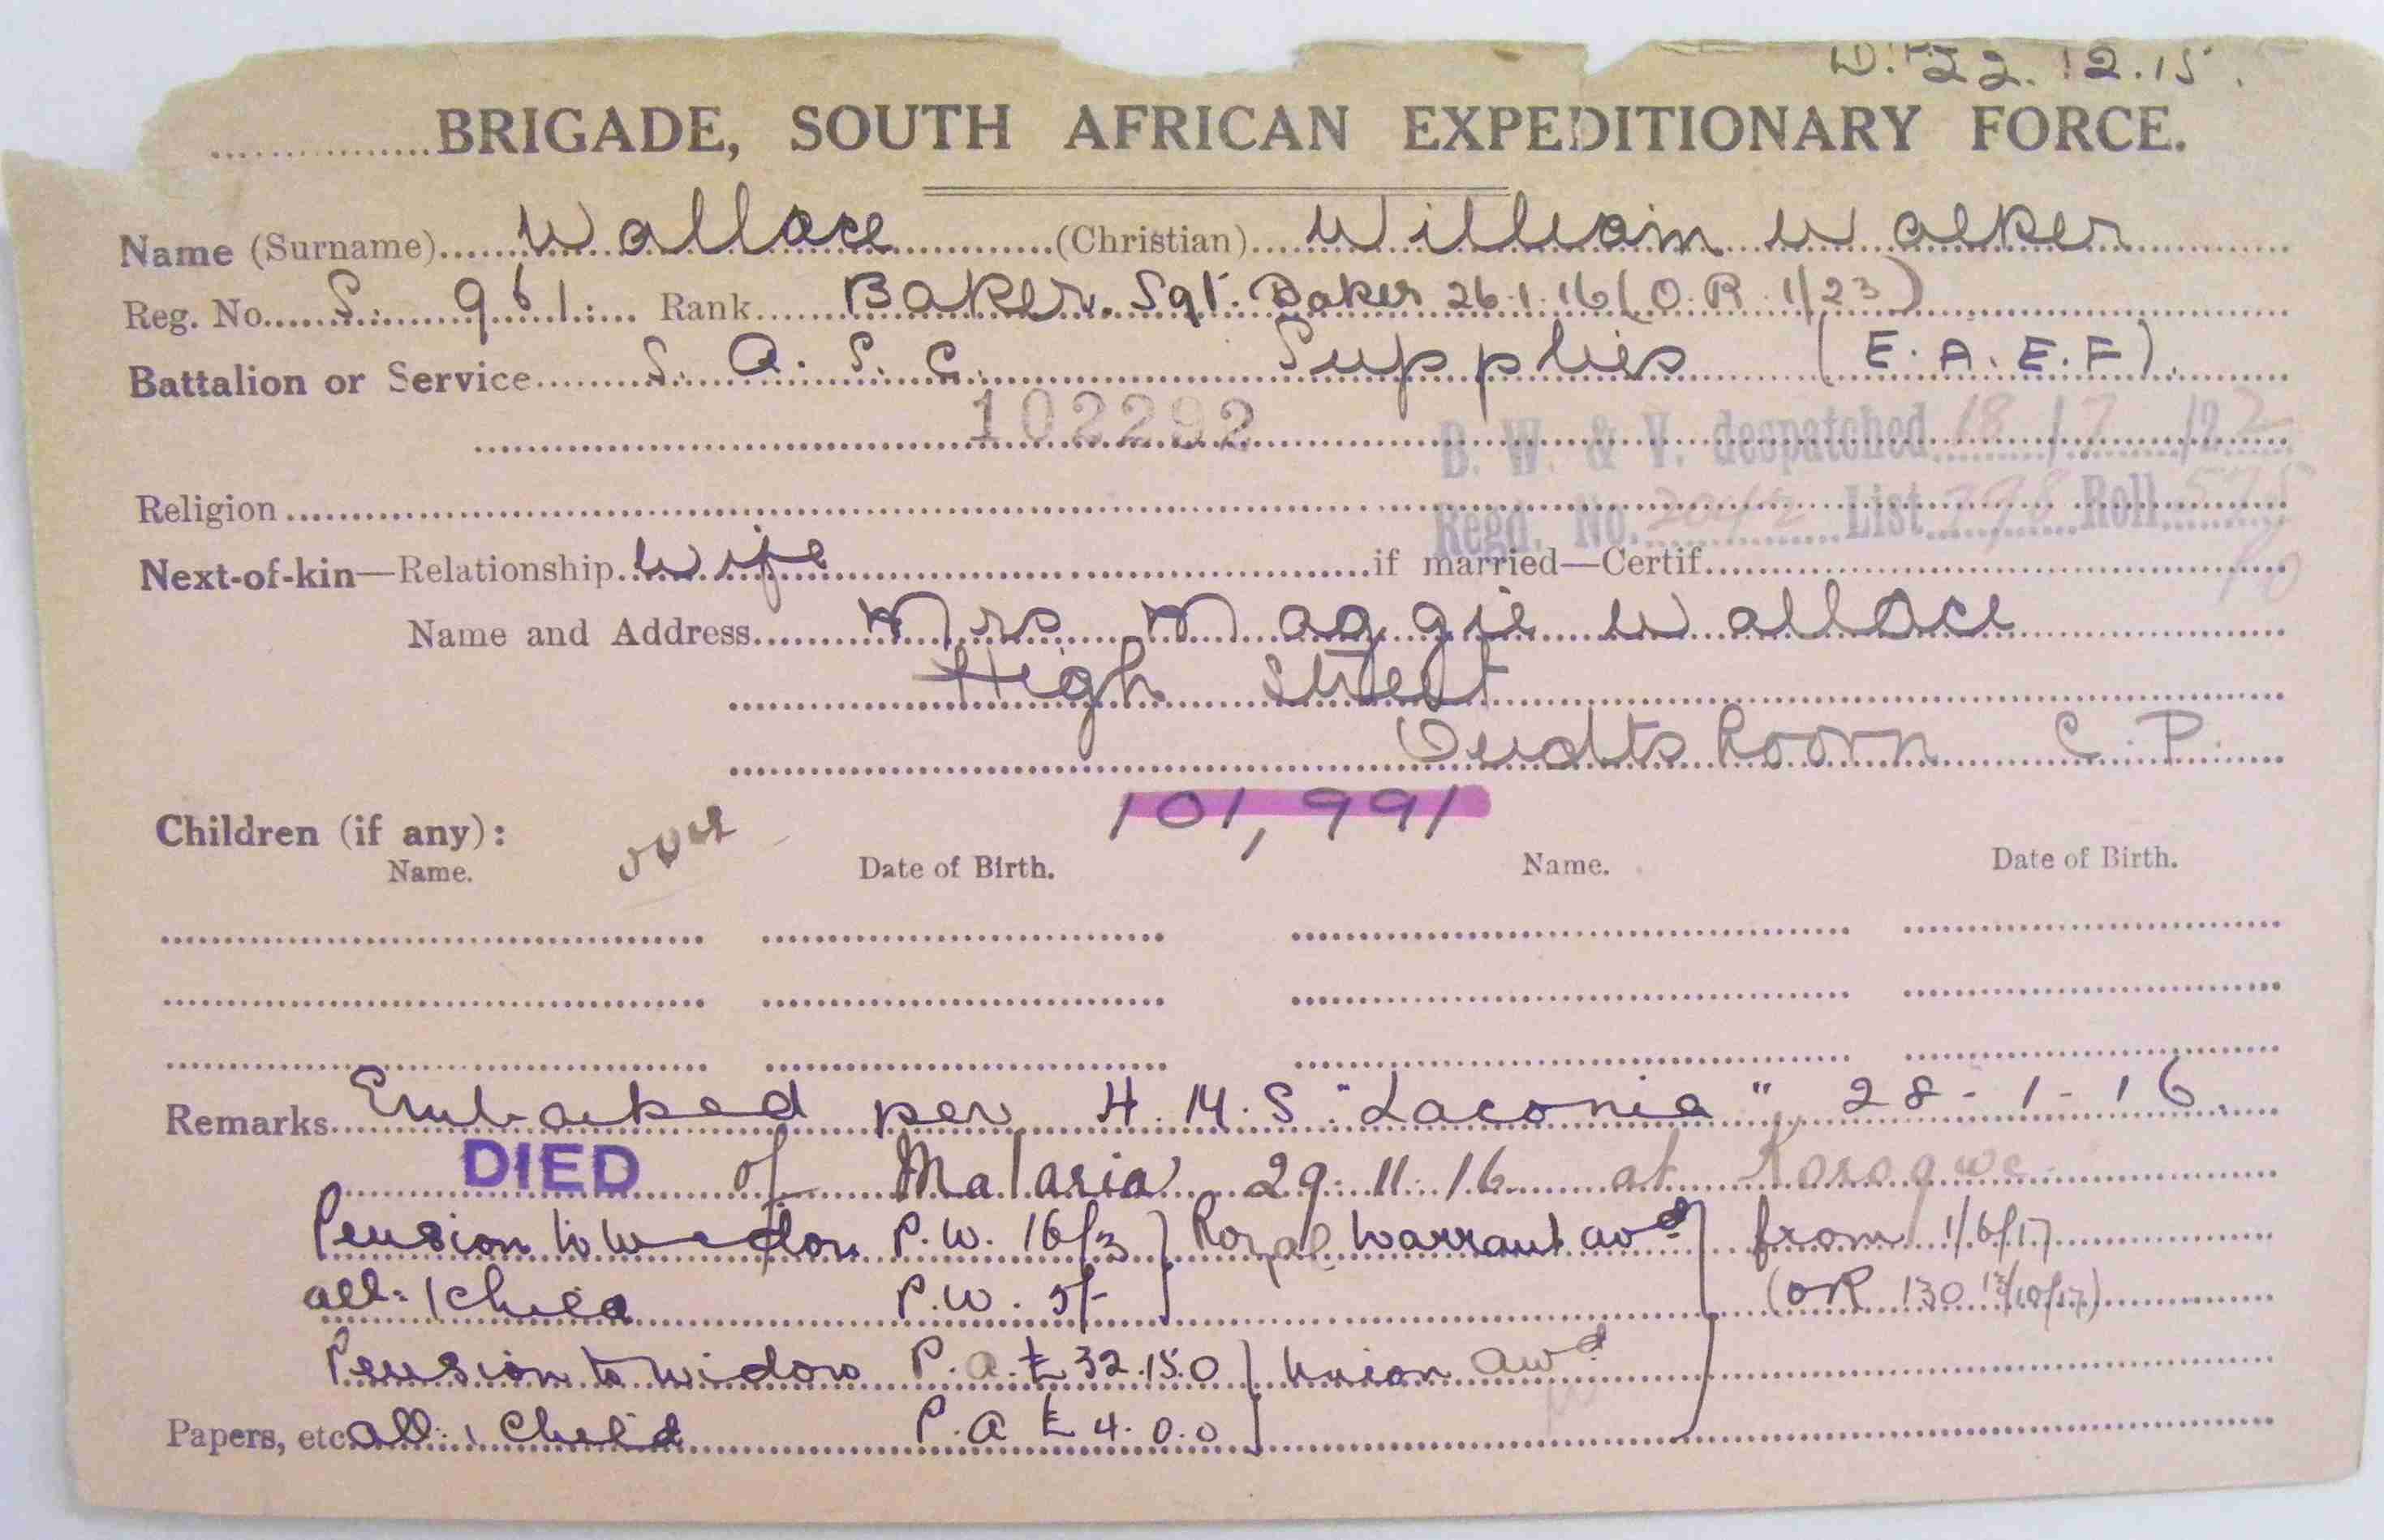 D. 22.12.15.
BRIGADE, SOUTH AFRICAN EXPEDITIONARY FORCE.
Name (Surname) Wallace (Christian) William Walker
Reg. No. S. 961. Rank Baker. Sgt. Baker 26.1.16 (O.R. 1/23)
Battalion or Service S.A.S.C. Supplies (E.A.E.F).
102292 B. W. & V. despatched 18/7/22
Religion Regd. No. List Roll
Next-of-kin—Relationship Wife if married—Certif.
Name and Address Mrs Maggie Wallace
High Street
Oudtshoorn C.P.
101,991
Children (if any): over
Name. Date of Birth. Name. Date of Birth.
Remarks Embarked per H.M.S. "Laconia" 28-1-16.
DIED of Malaria 29.11.16 at Korogwe
Pension to Widow P.W. 16/3 } Royal Warrant awd } from 1/6/17
all: 1 child P.W. 5/- (OR 130 /10/17)
Pension to widow P.a. £32.15.0 } Union awd
Papers, etc. all: 1 Child P.a £4.0.0